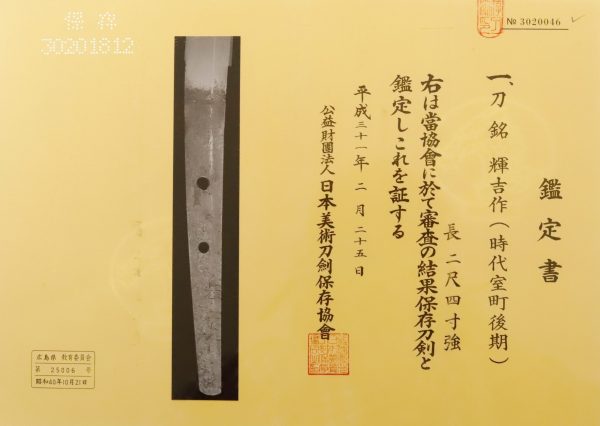 鑑定書
一、刀 銘 輝吉作(時代室町後期)
長 二尺四寸強
右は當協會に於て審査の結果保存刀剣と
鑑定しこれを証する
平成三十一年 二月 二十五日
公益財團法人 日本美術刀劍保存協會
№ 3020046
保存
30201812
広島県 教育委員会
第 25006 号
昭和40年10月21日